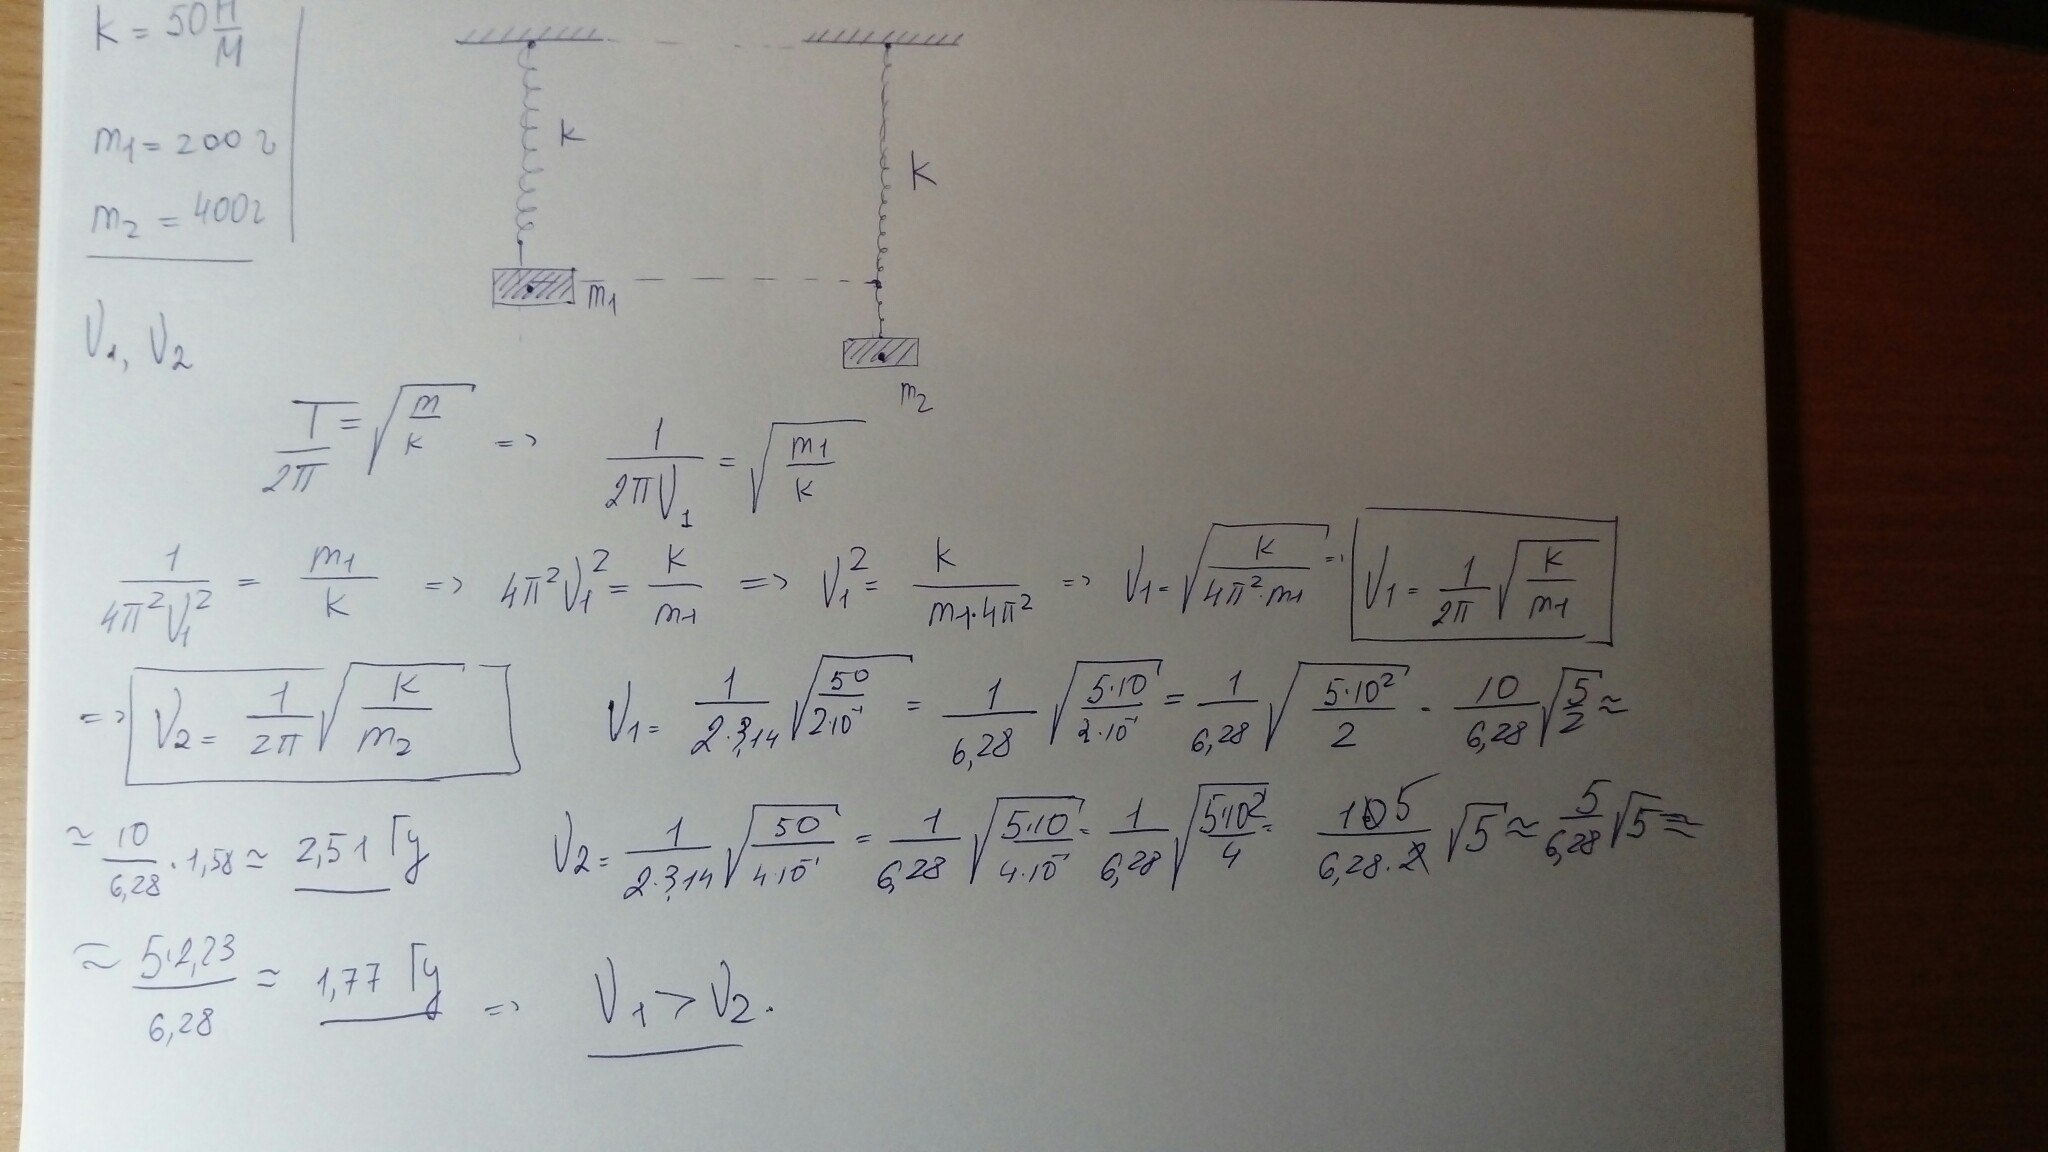 k = 50 Н/М
m₁ = 200 г
m₂ = 400 г
ν₁, ν₂
k
k
m₁
m₂
T/2π = √(m/k) => 1/(2πν₁) = √(m₁/k)
1/(4π²ν₁²) = m₁/k => 4π²ν₁² = k/m₁ => ν₁² = k/(m₁·4π²) => ν₁ = √(k/(4π²·m₁)) => ν₁ = 1/2π √(k/m₁)
=> ν₂ = 1/2π √(k/m₂) ν₁ = 1/(2·3,14) √(50/(2·10⁻¹)) = 1/6,28 √(5·10/(2·10⁻¹)) = 1/6,28 √(5·10²/2) = 10/6,28 √(5/2) ≈
≈ 10/6,28 · 1,58 ≈ 2,51 Гц ν₂ = 1/(2·3,14) √(50/(4·10⁻¹)) = 1/6,28 √(5·10/(4·10⁻¹)) = 1/6,28 √(5·10²/4) = 10 5/(6,28·2) √5 ≈ 5/6,28 √5 ≈
≈ 5·2,23/6,28 ≈ 1,77 Гц => ν₁ > ν₂.